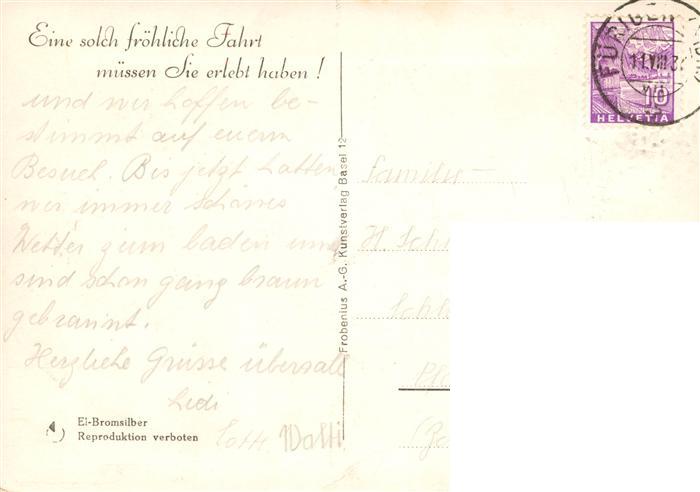 Eine solch fröhliche Fahrt
müssen Sie erlebt haben!
und wir hoffen be-
stimmt auf euern
Besuch. Bis jetzt hatten
wir immer schönes
Wetter zum baden und
sind schon ganz braun
gebrannt.
Herzliche Grüsse übersall
Ledi
Walti
El-Bromsilber
Reproduktion verboten
Frobenius A.-G. Kunstverlag Basel 12
FÜRIGEN
10
HELVETIA
Familie
H.